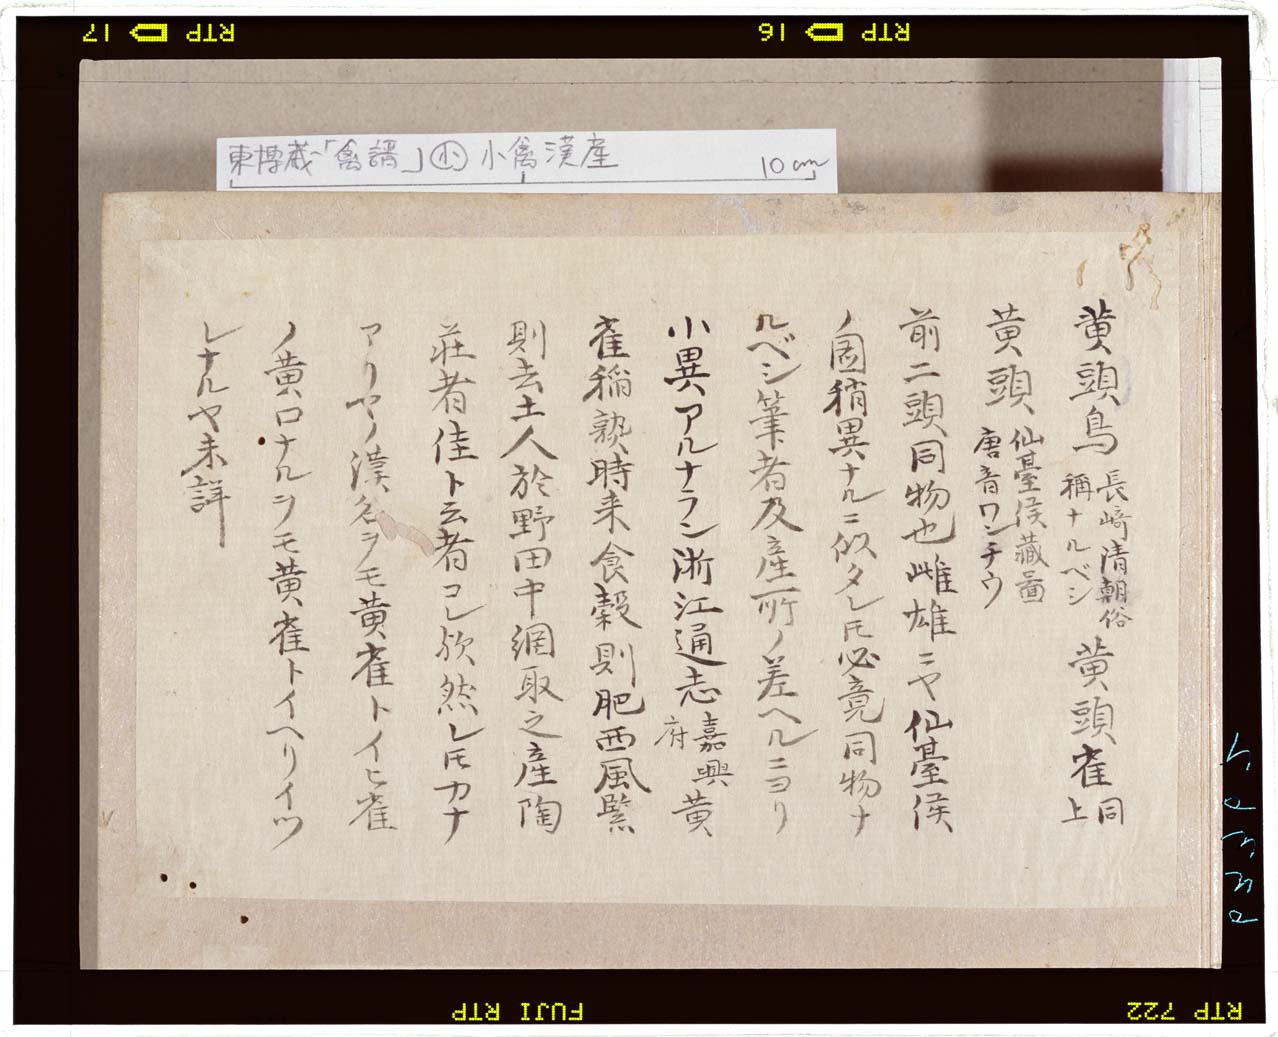 17 RTP
16 RTP
東博蔵「禽譜」㊥ 小禽漢産
10cm
黄頭鳥 長﨑清朝俗稱ナルベシ 黄頭雀 同上
黄頭 仙臺侯藏啚 唐音ワンチウ
前二頭同物也雌雄ニヤ仙臺侯
ノ圖稍異ナルニ似タレ𪜈必竟同物ナ
ルベシ筆者及産所ノ差ヘルニヨリ
小異アルナラン浙江通志 嘉興府 黄
雀稲熟時来食穀則肥西風緊
則去土人於野田中網取之産陶
莊者佳ト云者コレ歟然レ𪜈カナ
アリヤノ漢名ヲモ黄雀トイヒ雀
ノ黄口ナルヲモ黄雀トイヘリイツ
レナルヤ未詳
FUJI RTP
RTP 722